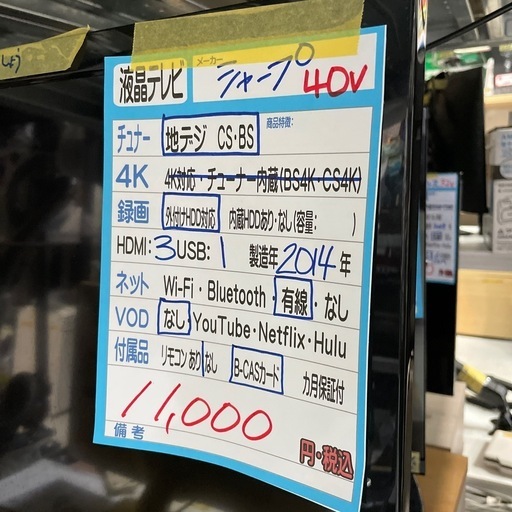 しょう
液晶テレビ メーカー シャープ 40V
チューナー 地デジ CS・BS 商品特徴:
4K 4K対応・チューナー内蔵(BS4K・CS4K)
録画 外付けHDD対応 内蔵HDDあり・なし(容量: )
HDMI:3 USB:1 製造年2014年
ネット Wi-Fi・Bluetooth・有線・なし
VOD なし・YouTube・Netflix・Hulu
付属品 リモコンあり なし B-CASカード カ月保証付
11,000
備考 円・税込